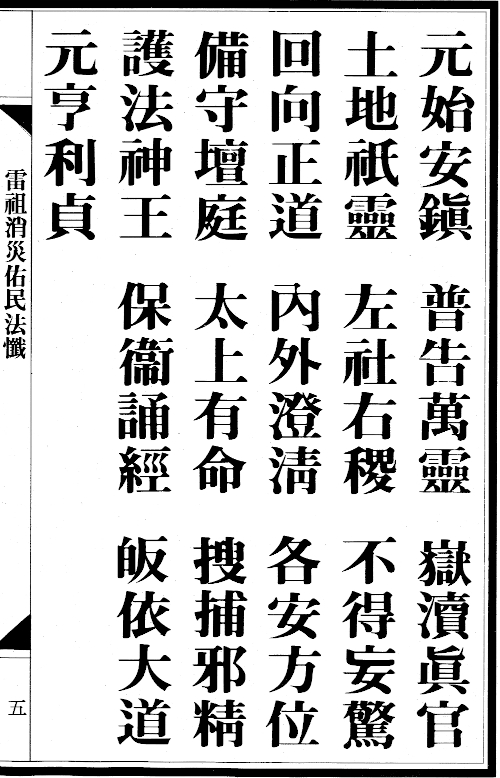 元始安鎭　普告萬靈　嶽瀆眞官
土地祇靈　左社右稷　不得妄驚
回向正道　內外澄清　各安方位
備守壇庭　太上有命　搜捕邪精
護法神王　保衞誦經　皈依大道
元亨利貞
雷祖消災佑民法懺
五